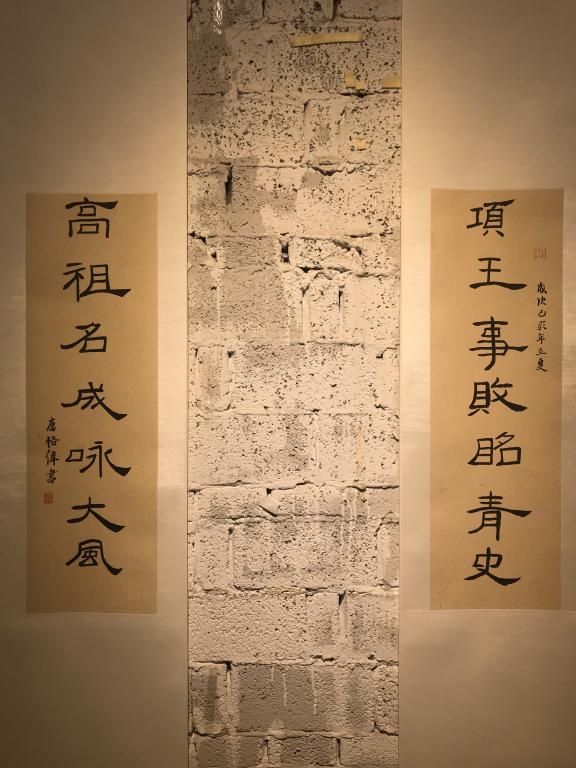 歲次己亥年立夏
項王事敗昭青史
高祖名成咏大風
唐恪偉書